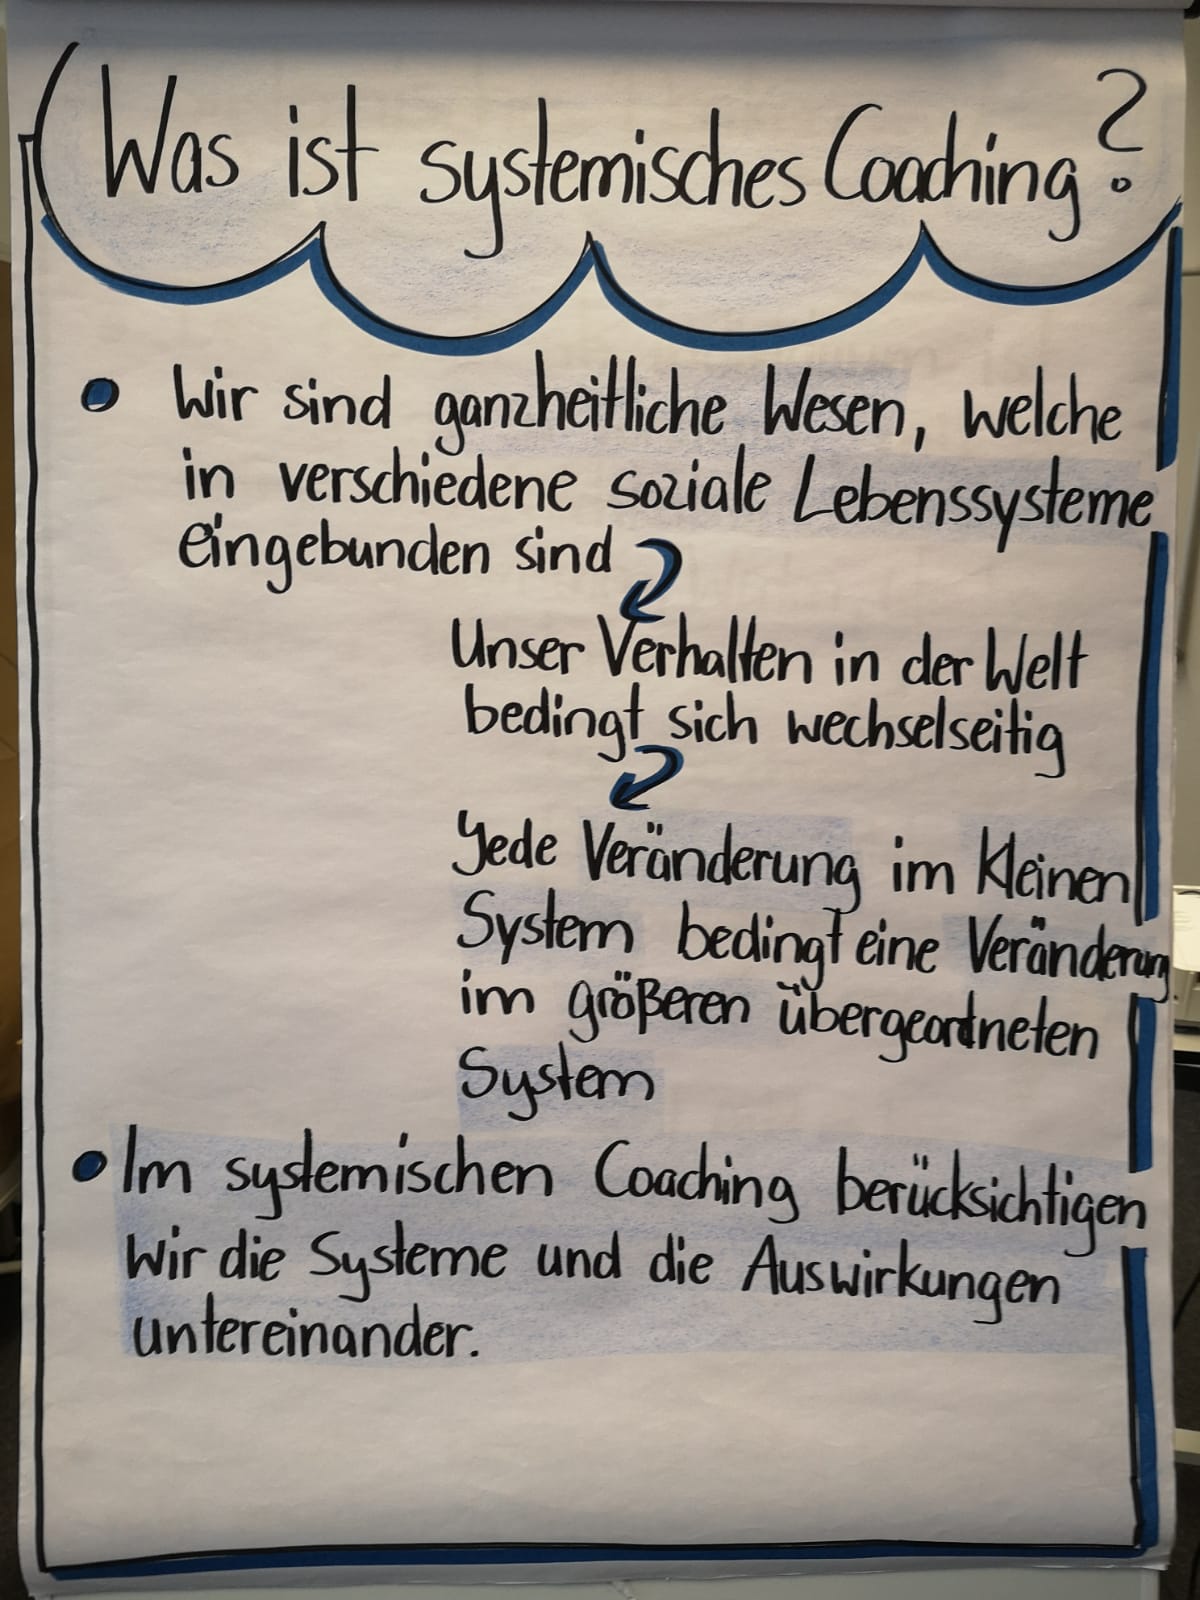 Was ist systemisches Coaching?
Wir sind ganzheitliche Wesen, welche
in verschiedene soziale Lebenssysteme
eingebunden sind
Unser Verhalten in der Welt
bedingt sich wechselseitig
Jede Veränderung im kleinen
System bedingt eine Veränderung
im größeren übergeordneten
System
Im systemischen Coaching berücksichtigen
wir die Systeme und die Auswirkungen
untereinander.